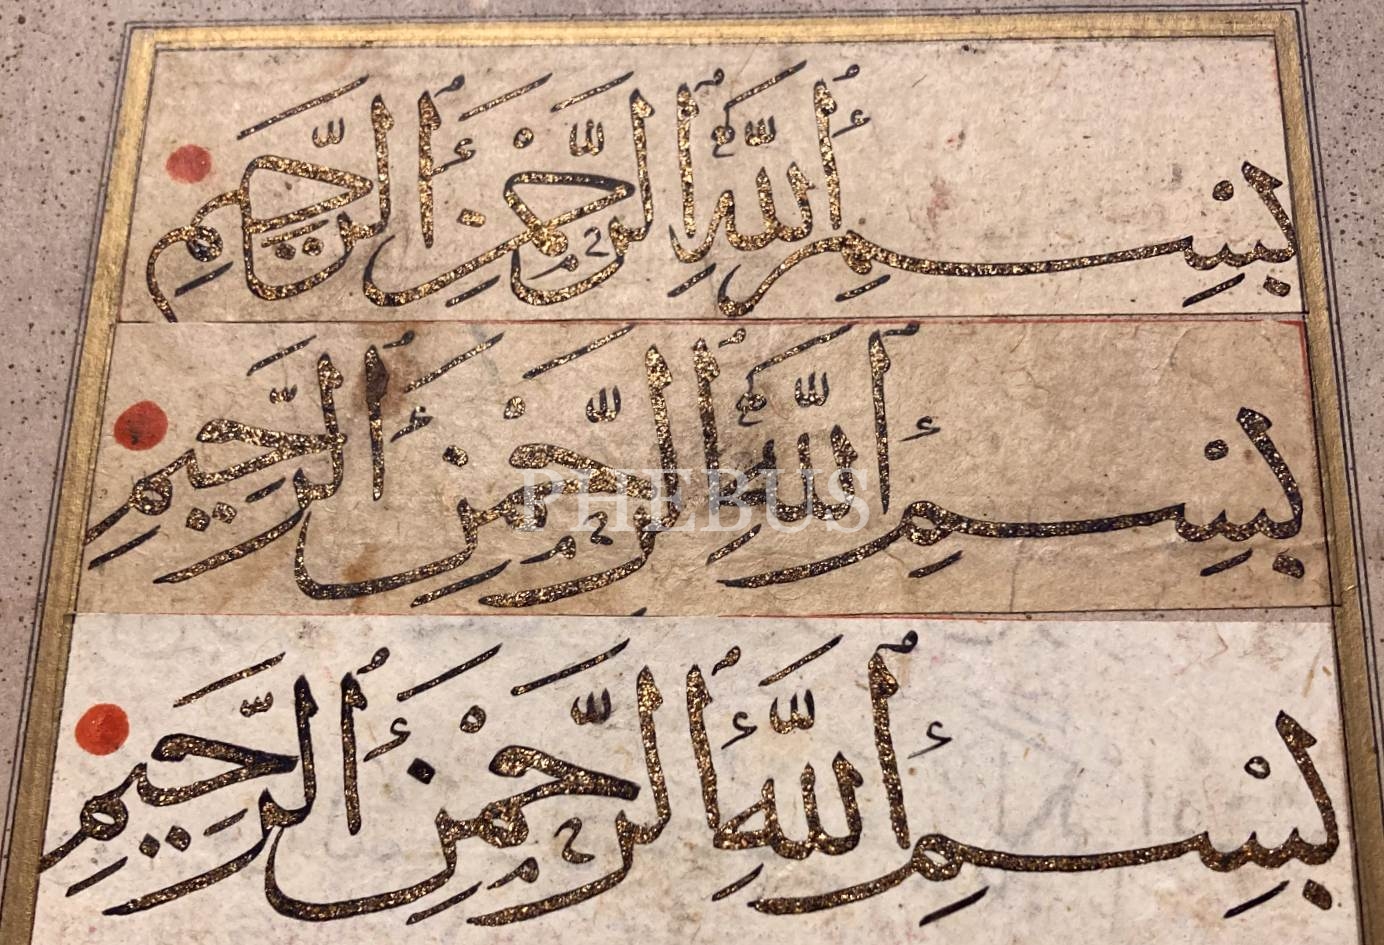 بِسْمِ ٱللَّهِ ٱلرَّحْمَنِ ٱلرَّحِيمِ
بِسْمِ ٱللَّهِ ٱلرَّحْمَنِ ٱلرَّحِيمِ
PHEBUS
بِسْمِ ٱللَّهِ ٱلرَّحْمَنِ ٱلرَّحِيمِ